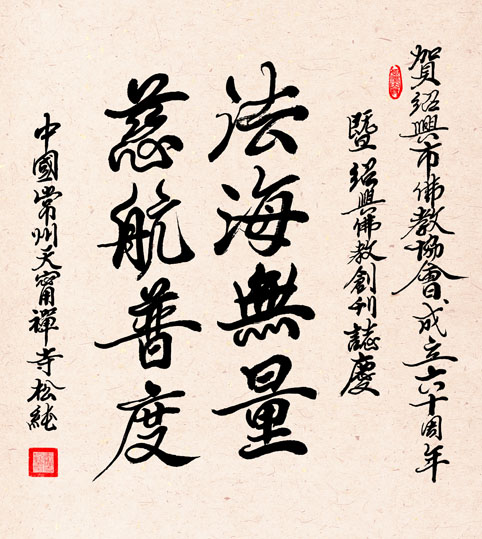 賀紹興市佛教協會成立六十周年
暨紹興佛教創刊誌慶
法海無量
慈航普度
中國常州天甯禪寺松純